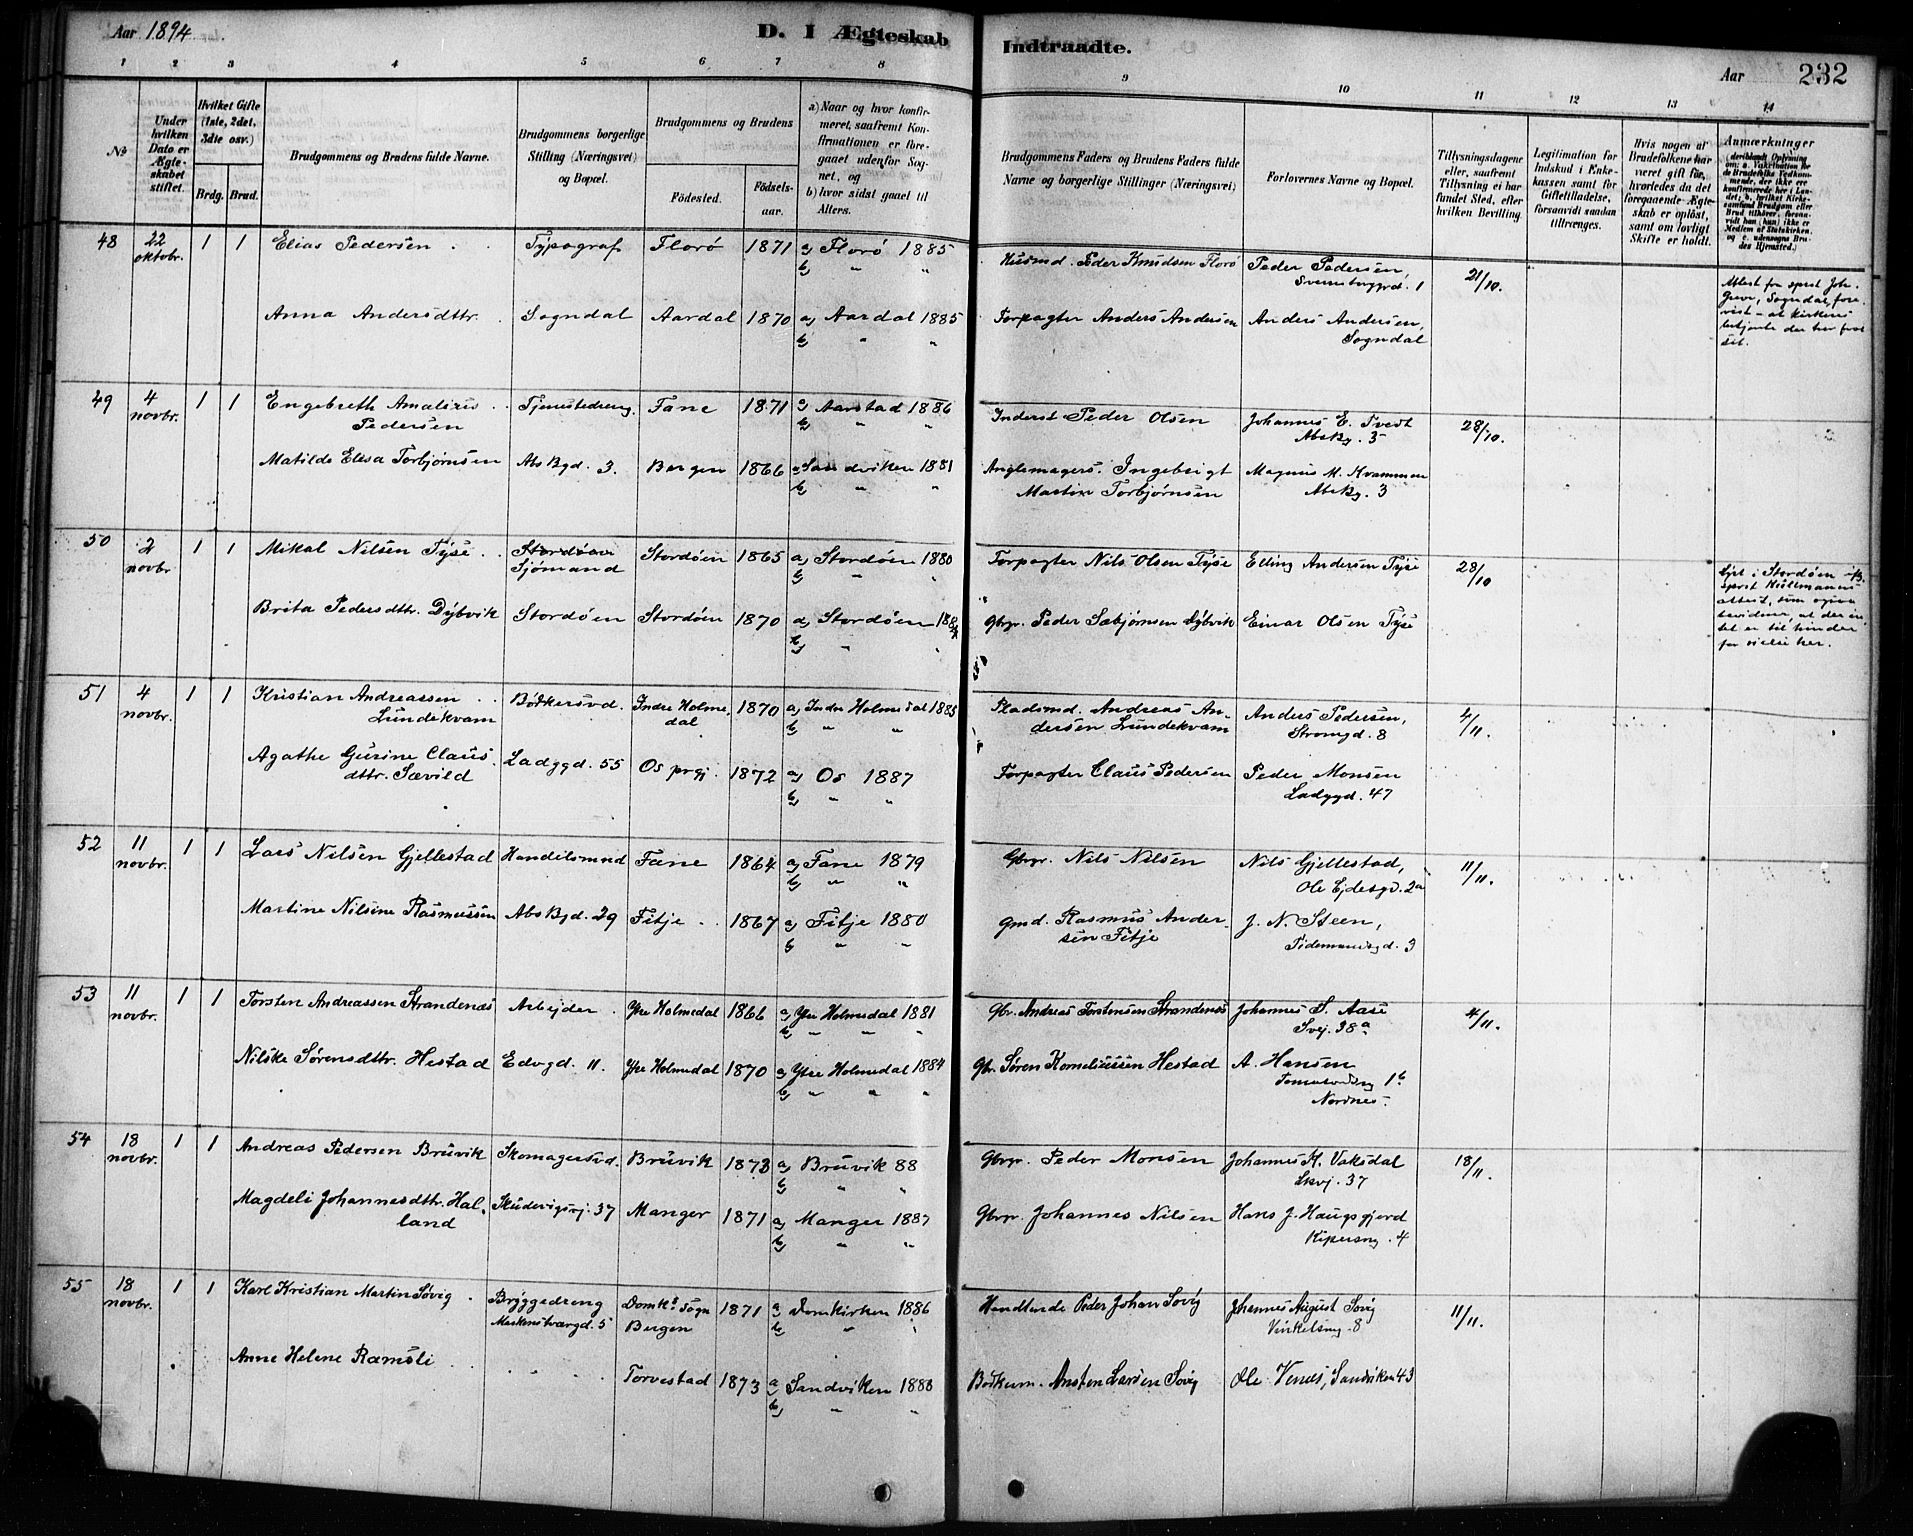 Aar 1894
D. I Ægteskab Indtraadte.
Aar 232
1 2 3 4 5 6 7 8 9 10 11 12 13 14
№
Under hvilken Dato er Ægteskabet stiftet.
Hvilket Gifte (1ste, 2det, 3die osv.)
Brdg. Brud.
Brudgommens og Brudens fulde Navne.
Brudgommens borgerlige Stilling (Næringsvei) og Bopæl.
Brudgommens og Brudens
Fødested. Fødselsaar.
a) Naar og hvor konfirmeret, saafremt Konfirmationen er foregaaet udenfor Sognet, og
b) hvor sidst gaaet til Alters.
Brudgommens Faders og Brudens Faders fulde Navne og borgerlige Stillinger (Næringsvei)
Forlovernes Navne og Bopæl.
Tillysningsdagene eller, saafremt Tillysning ei har fundet Sted, efter hvilken Bevilling.
Legitimation for Indskud i Enkekassen samt for Giftetilladelse, forsaavidt saadan tiltrænges.
Hvis nogen af Brudefolkene har været gift før, hvorledes da det foregaaende Ægteskab er opløst, samt om lovligt Skifte er holdt.
Anmærkninger
48 22 oktobr. 1 1 Elias Pedersen Typograf Florø 1871 a) Florø 1885 Husmd. Peder Knudsen Florø Peder Pedersen, 21/10.
b) " "
Anna Andersdttr. Sogndal Aardal 1870 a) Aardal 1885 Forpagter Anders Andersen Anders Andersen, Sogndal
b) " "
49 4 novbr. 1 1 Engebreth Amalius Pedersen Tjenestedreng Fane 1871 a) Aarstad 1886 Inderst Peder Olsen Johannes E. Tvedt Absbg. 3 28/10.
b) " "
Matilde Elisa Torbjørnsen Abs Bgd. 3. Bergen 1866 a) Sandviken 1881 Ingebrigt Martin Torbjørnsen Magnus M. Kvammen Absbg. 3
b) " "
50 2 novbr 1 1 Mikal Nilsen Tyse Sjømand Stordøen 1865 a) Stordøen 1880 Forpagter Nils Olsen Tyse Elling Andersen Tyse 28/10
b) " "
Brita Pedersdttr. Dybvik Stordøen Stordøen 1870 a) Stordøen Gbrgr. Peder Sæbjørnsen Dybvik Einar Olsen Tyse
b) " "
51 4 novbr. 1 1 Kristian Andreassen Lundekvam Bødkersvd. Indre Holmedal 1870 a) Indre Holmedal 1885 Pladsmd. Andreas Andersen Lundekvam Anders Pedersen, Stromgd. 8 4/11.
b) " "
Agathe Gurine Clausdttr. Sævild Ladggd. 55 Os prgj. 1872 a) Os 1887 Forpagter Claus Pedersen Peder Monsen Ladggd. 47
b) " "
52 11 novbr. 1 1 Lars Nilsen Gjellestad Handelsmnd Fane 1864 a) Fane 1879 Gbrgr. Nils Nilsen Nils Gjellestad, Ole 2a 11/11.
b) " "
Martine Nilsine Rasmussen Abs Bgd. 29 Fitje 1867 a) Fitje 1880 Gmd. Rasmus Andersen Fitje J. N. Steen, Tidemandsgd. 3
b) " "
53 11 novbr. 1 1 Torsten Andreassen Strandenæs Arbejder Ytre Holmedal 1866 a) Ytre Holmedal 1881 Gbr. Andreas Torstensen Strandenæs Johannes S. Aase Svej. 38a 4/11.
b) " " "
Nilske Sørensdttr. Hestad Edvgd. 11. Ytre Holmedal 1870 a) Ytre Holmedal 1884 Gbr. Søren Korneliussen Hestad A. Hansen 1b Nordnes.
b) " " "
54 18 novbr. 1 1 Andreas Pedersen Bruvik Skomagersvd. Bruvik 1873 a) Bruvik 88 Gbrgr. Peder Monsen Johannes K. Vaksdal Skvj. 37 18/11.
b) " "
Magdeli Johannesdttr. Halland Skudevigsvj. 37 Manger 1871 a) Manger 1887 Gbrgr. Johannes Nilsen Hans J. Haugsgjerd Kipersmg. 4
b) " "
55 18 novbr. 1 1 Karl Kristian Martin Søvig Bryggedreng 5 Domk. sogn Bergen 1871 a) Domkirken 1886 Handlende Peder Johan Søvig Johannes August Søvig Vinkelsmg. 8 11/11.
b) " "
Anne Helene Ramsli Torvestad 1873 a) Sandviken 1888 Larsen Søvig Ole Sandviken 43
b) " "